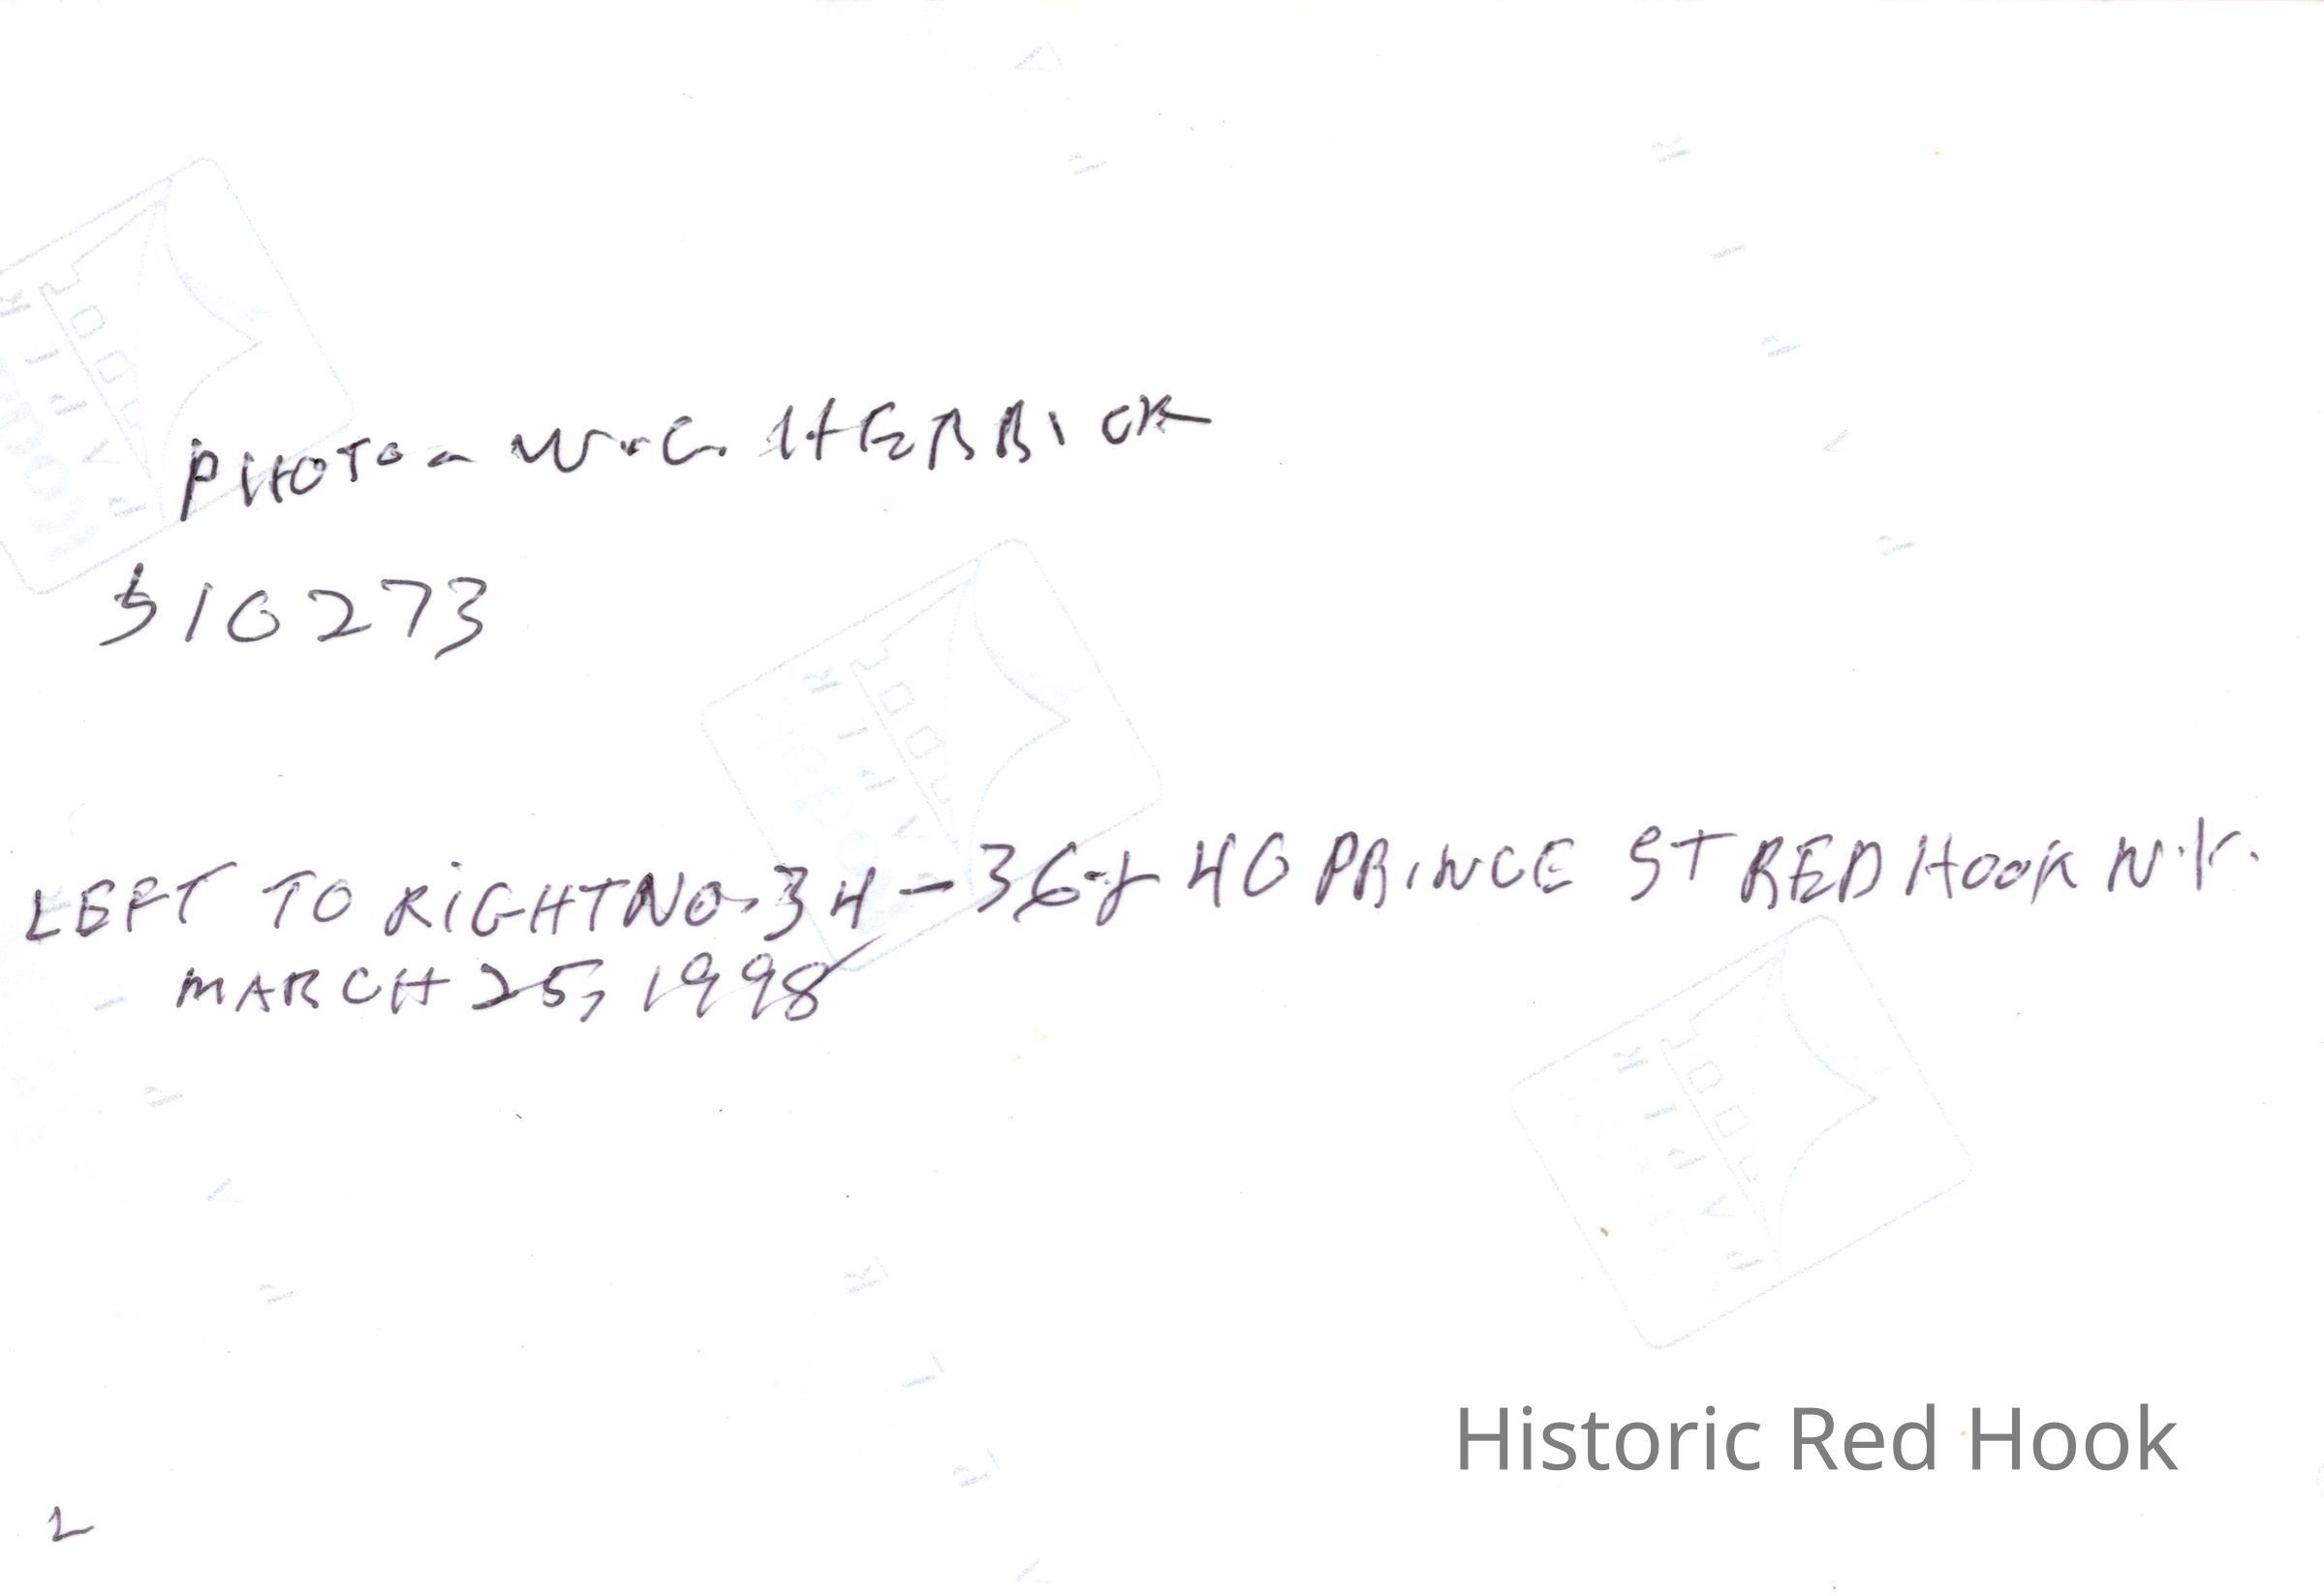 PHOTO - W.C. HERRICK
510273
LEFT TO RIGHT NO. 34 - 36 & 40 PRINCE ST RED HOOK N.Y.
MARCH 25, 1998
Historic Red Hook
2